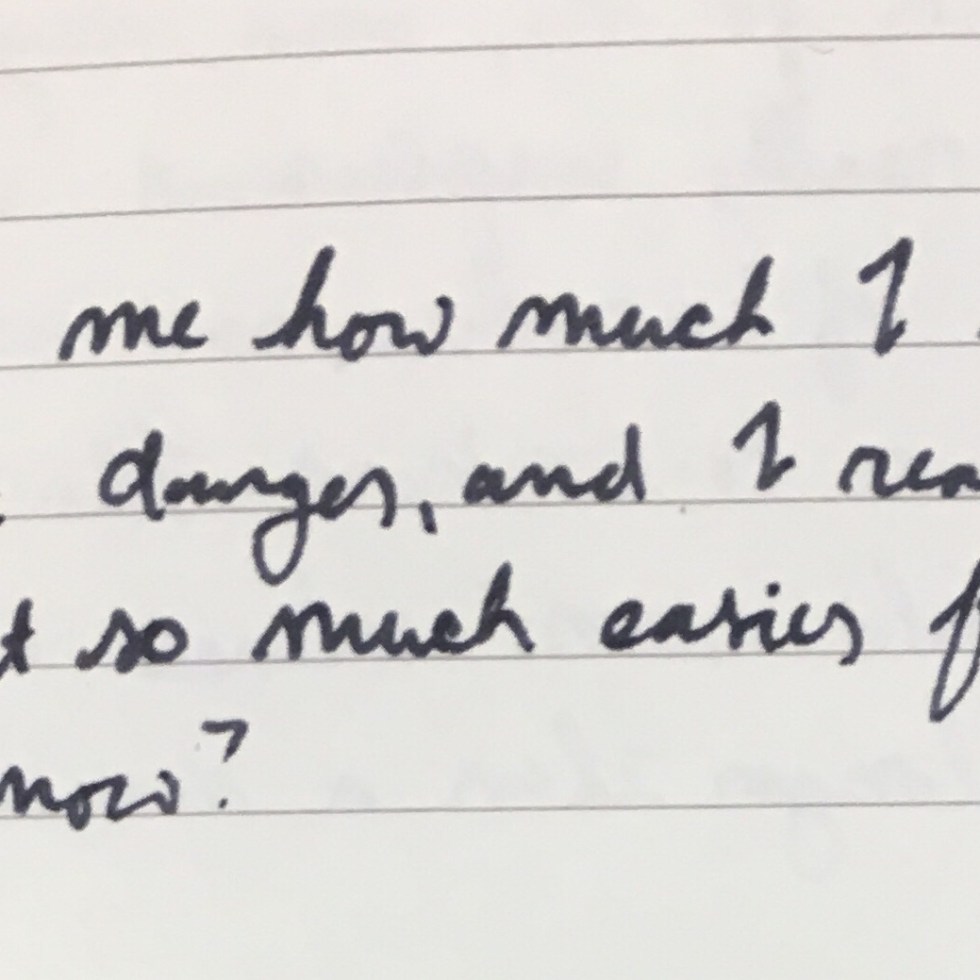 me how much I
danger, and I rea
t so much easier f
now?